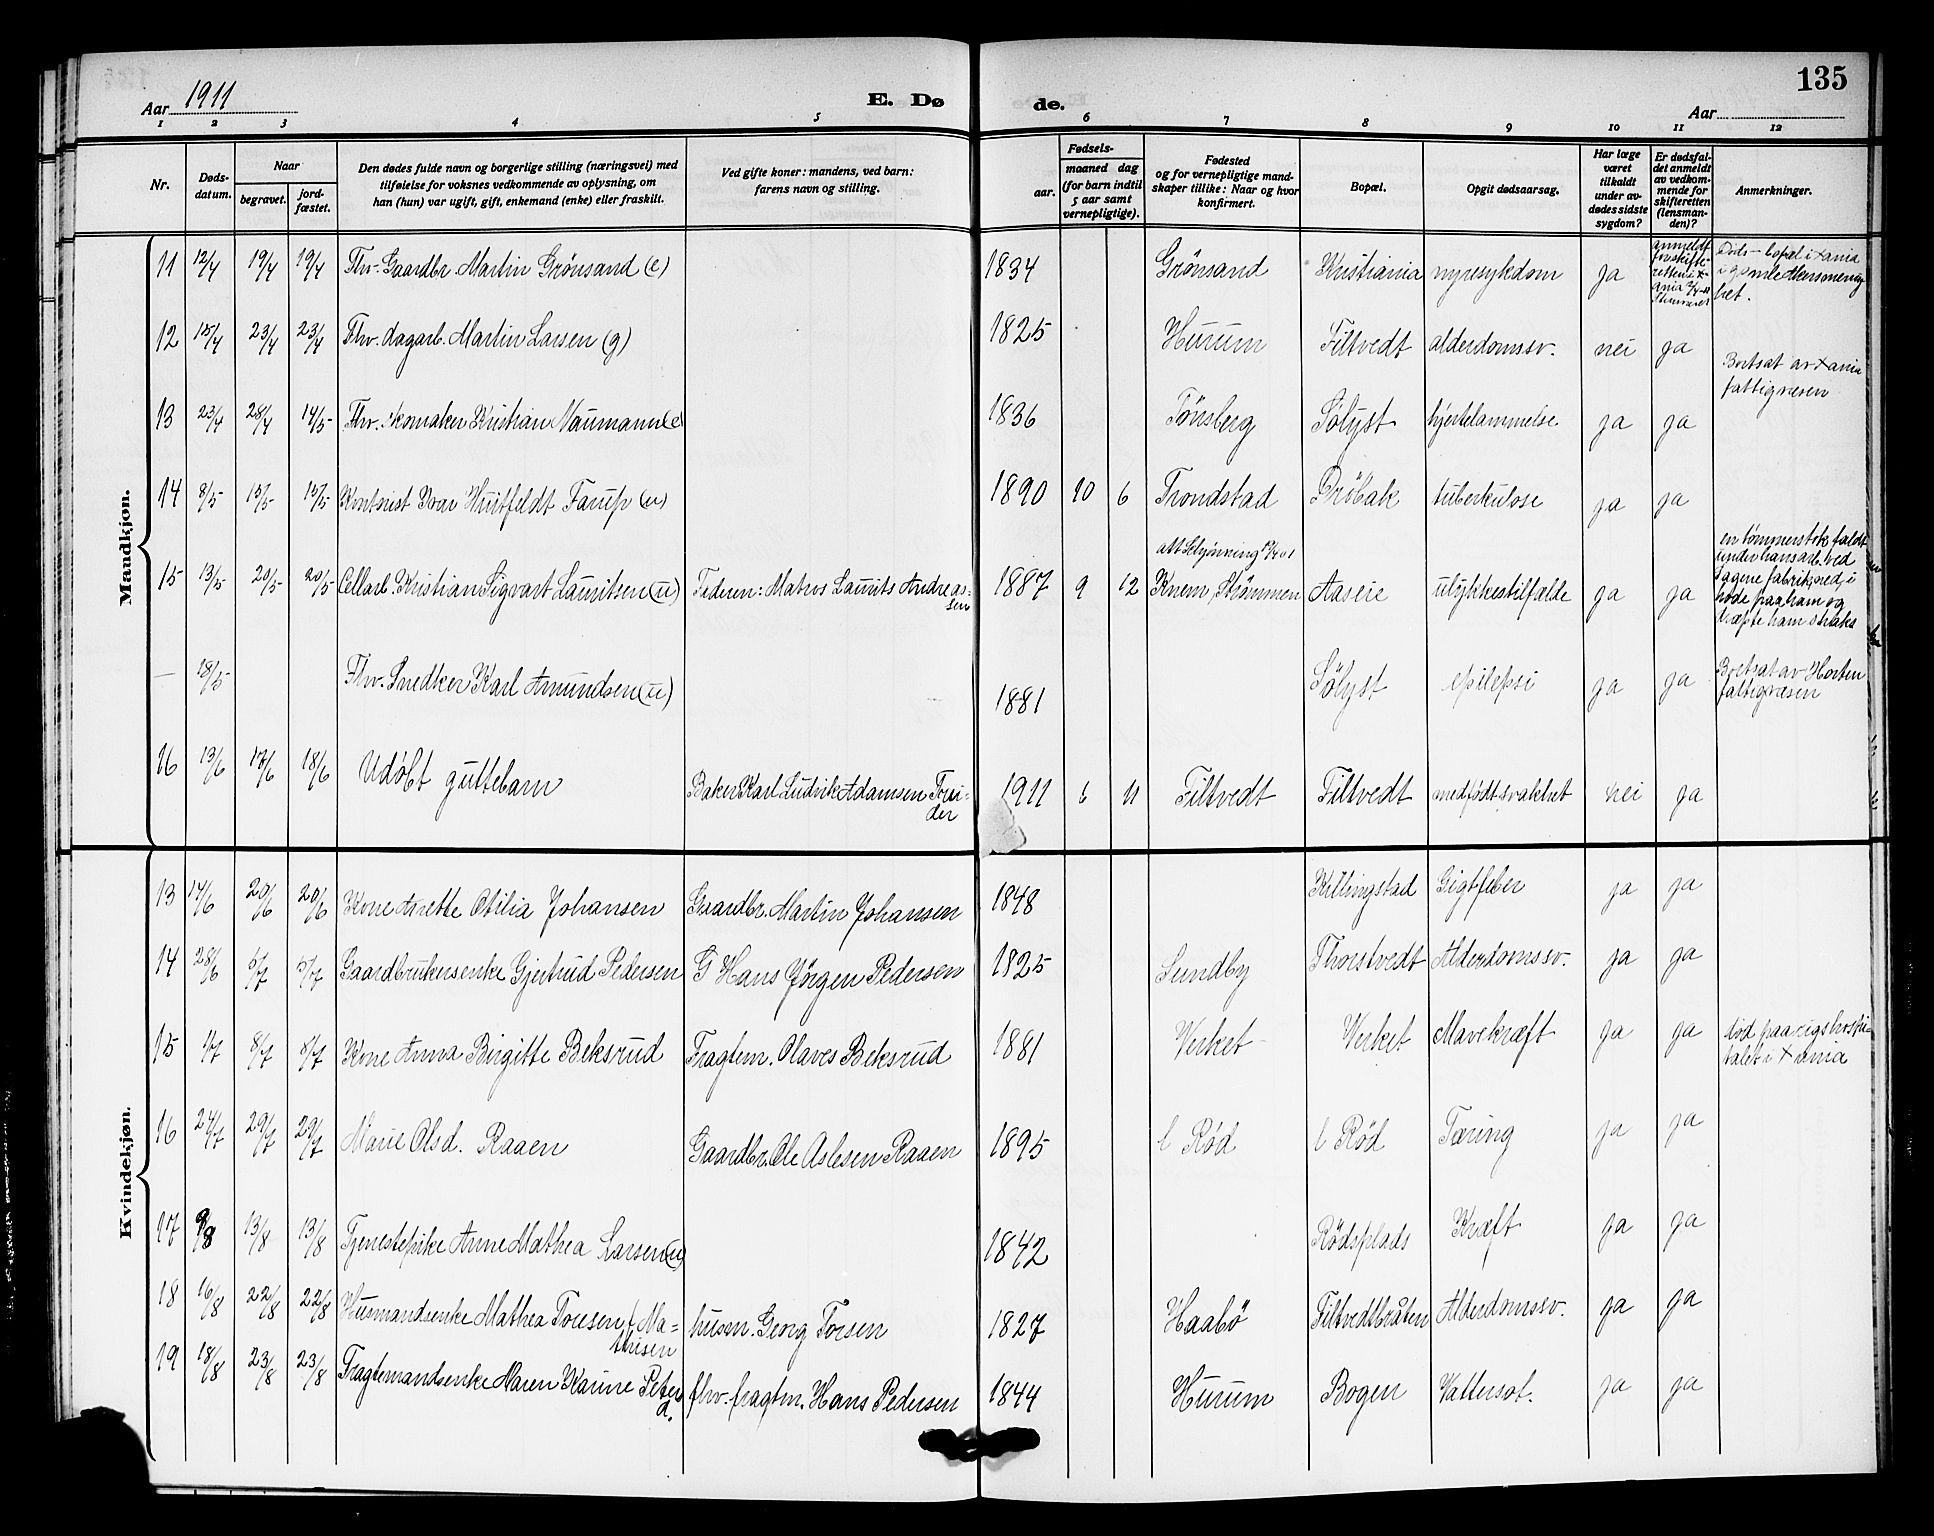 Aar 1911 E. Dø de. Aar 135
1 2 3 4 5 6 7 8 9 10 11 12
Nr. Døds-datum. Naar begravet. jord-fæstet. Den dødes fulde navn og borgerlige stilling (næringsvei) med tilføielse for voksnes vedkommende av oplysning, om han (hun) var ugift, gift, enkemand (enke) eller fraskilt. Ved gifte koner: mandens, ved barn: farens navn og stilling. Fødsels- aar. maaned dag (for barn indtil 5 aar samt vernepligtige). Fødested og for vernepligtige mand-skaper tillike: Naar og hvor konfirmert. Bopæl. Opgit dødsaarsag. Har læge været tilkaldt under av-dødes sidste sygdom? Er dødsfal-det anmeldt av vedkom-mende for skifteretten (lensman-den)? Anmerkninger.
Mandkjøn.
11 12/4 19/4 19/4 Fhv. Gaardbr. Martin Grönsand (e) 1834 Grönsand Kristiania nyresykdom ja
12 15/4 23/4 23/4 Fhv. dagarb. Martin Larsen (g) 1825 Hurum Filtvedt alderdomssv. nei ja
13 23/4 28/4 14/5 Fhv. skomaker Kristian Naumann (e) 1836 Tönsberg Sölyst hjertelammelse ja ja Bortsat av xania fattigvæsen
14 8/5 15/5 15/5 Kontorist Ivar Huitfeldt Farup (u) 1890 10 6 Trondstad Dröbak tuberkulose ja ja
15 13/5 20/5 20/5 Cellarb. Kristian Sigvart Lauritsen (u) Faderen: Matros Laurits Andreassen 1887 9 12 Knem, Strömmen Aaseie ulykkestilfælde ja ja en tömmerstok faldt under hans arb. ved fabrik ned i hode paa ham og dræpte ham straks
— 18/5 Fhv. Snedker Karl Amundsen (u) 1881 Sölyst epilepsi ja ja Bortsat av Horten fattigvæsen
16 13/6 17/6 18/6 Udöbt guttebarn Baker Karl Ludvik Adamsen 1911 6 11 Filtvedt Filtvedt medfödt svakhet nei ja
Kvindekjøn.
13 14/6 20/6 20/6 Kone Anette Otilia Johansen Gaardbr. Martin Johansen 1848 Killingstad Gigtfeber ja ja
14 28/6 5/7 5/7 Gaardbrukersenke Gjertrud Pedersen G Hans Jörgen Pedersen 1825 Sundby Thorstvedt Alderdomssv. ja ja
15 1/7 8/7 8/7 Kone Anna Birgitte Beksrud Fragtem. Olaves Beksrud 1881 Verket Verket Mavekræft ja ja död paa rigshospitalet i xania
16 24/7 29/7 29/7 Marie Olsd. Raaen Gaardbr. Ole Aslesen Raaen 1895 l Rød l Rød Tæring ja ja
17 9/8 13/8 13/8 Tjenestepike Anne Mathea Larsen (u) 1842 Rödsplads Kræft ja ja
18 16/8 22/8 22/8 Husmandsenke Mathea Toresen f Mathisen husm. Georg Torsen 1827 Haabö Filtvedtbråten Alderdomssv. ja ja
19 18/8 23/8 23/8 Fragtemandsenke Maren Karine Peters d. fhv. fragtm. Hans Pedersen 1844 Hurum Bogen Vattersot. ja ja